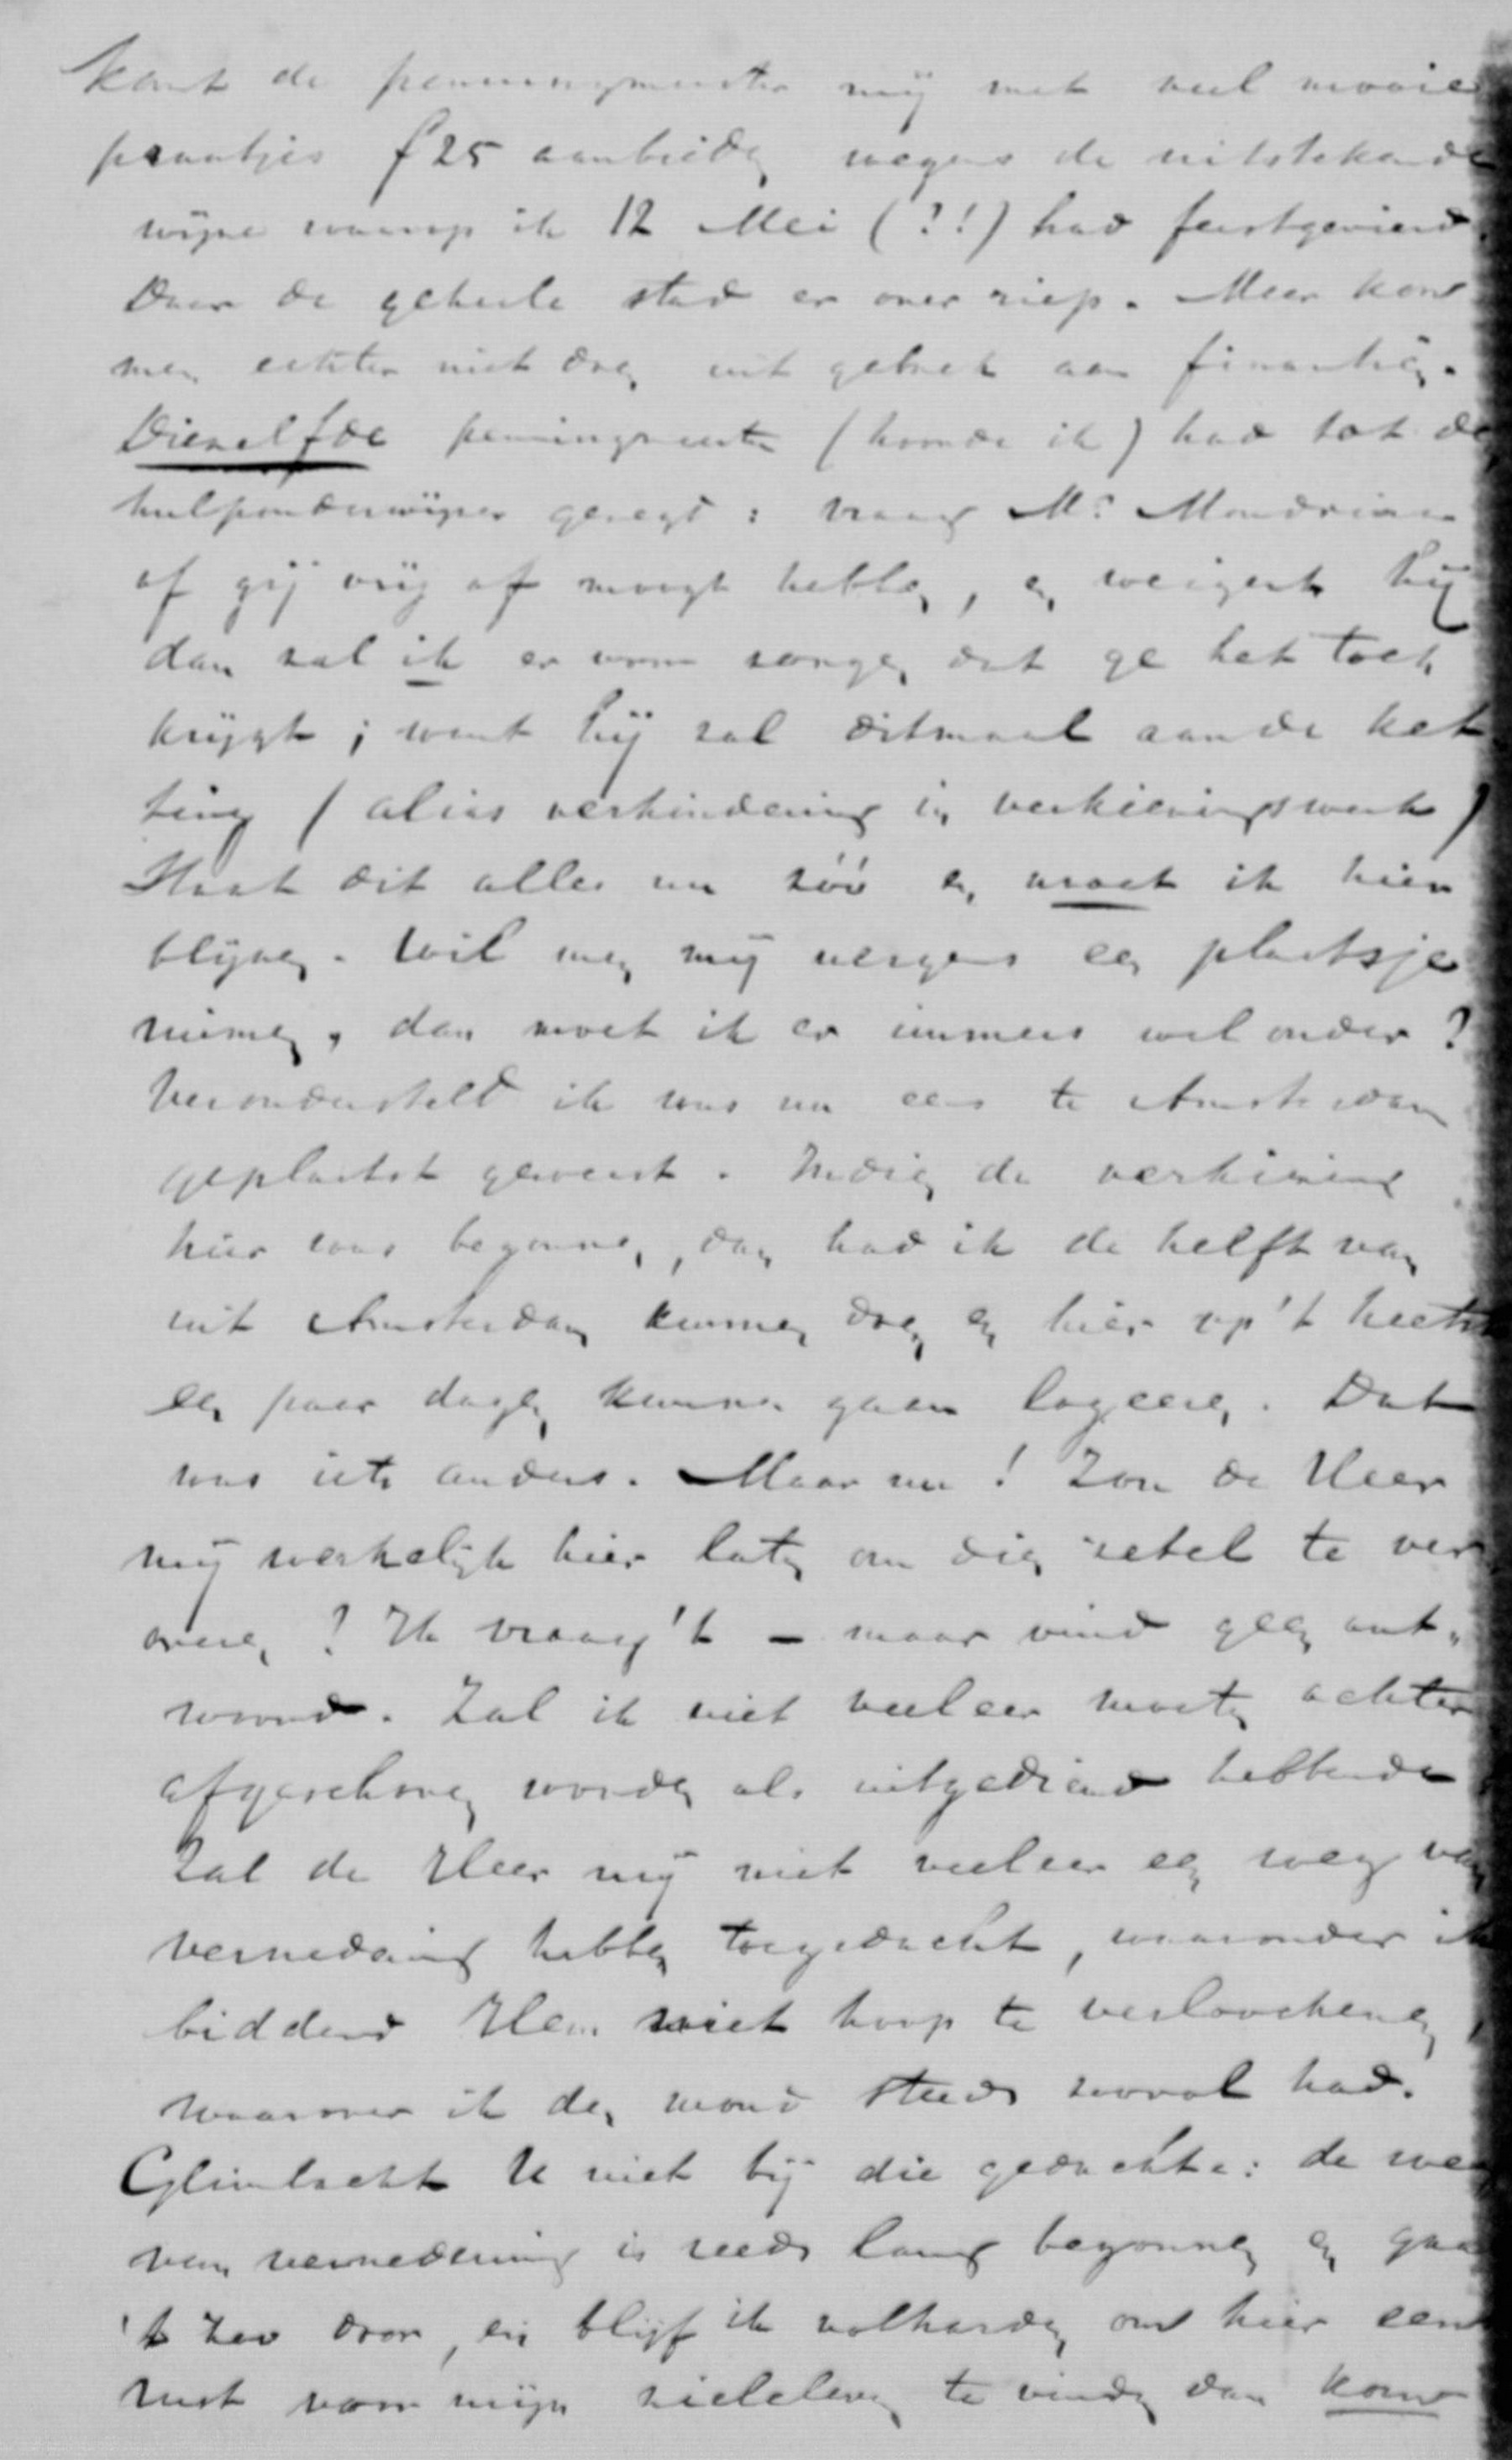 komt de penningmeester mij met veel mooie
praatjes f25 aanbieden wegens de uitstekende
wijze waarop ik 12 Mei (?!) had feestgevierd.
Daar de geheele stad er over riep. Meer kon
men echter niet doen uit gebrek aan financiën.
Diezelfde penningmeester (hoorde ik) had tot de
hulponderwijzer gezegd: vraag Mr. Mondriaan
of gij vrij af moogt hebben, en weigert hij
dan zal ik er voor zorgen dat ge het toch
krijgt; want hij zal ditmaal aan de ket
ting (alias verhindering in verkiezingswerk)
Staat dit alles nu zóó en moet ik hier
blijven. Wil men mij nergens een plaatsje
ruimen, dan moet ik er immers wel onder?
Verondersteld ik was nu eens te Amsterdam
geplaatst geweest. Indien de verkiezing
hier was begonnen, dan had ik de helft van
uit Amsterdam kunnen doen en hier op 't heetst
een paar dagen kunnen gaan logeeren. Dat
was iets anders. Maar nu! Zou de Heer
mij werkelijk hier laten om dien zetel te ver
overen? Ik vraag 't – maar vind geen ant„
woord. Zal ik niet veeleer moeten achter
afgeschoven worden als uitgediend hebbende
Zal de Heer mij niet veeleer een weg van
vernedering hebben toegedacht, waaronder ik
biddend Hem niet hoop te verloochenen,
waarover ik den mond steeds zooval had.
Glimlacht U niet bij die gedachte: de weg
van vernedering is reeds lang begonnen en gaa
't zoo door, en blijf ik volharden om hier een
rust voor mijn zieleleven te vinden dan kom